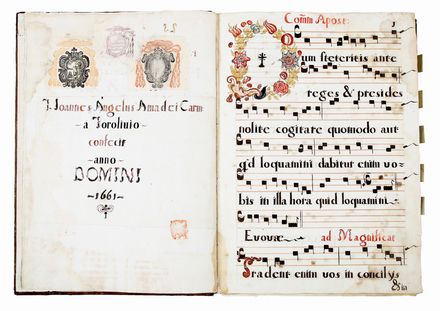 F. Joannes Angelus Amadei Carm
~ a Forolivio ~
confecit
~ anno ~
DOMINI
~ 1661 ~
Com̃ Apost:
1
Dum steteritis ante
reges & presides
nolite cogitare quomodo aut
q̇d loquamini dabitur enim vo=
bis in illa hora quid loquamini
Evovæ ad Magnificat
Tradent enim vos in concilÿs